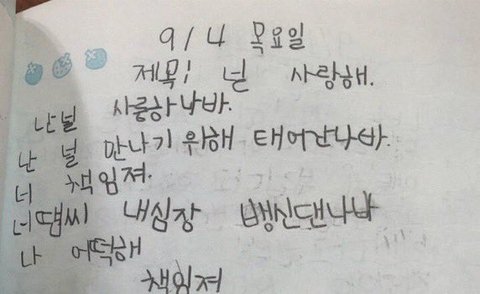 9/4 목요일
제목: 넌 사랑해.
난널 사룽하나바.
난 널 만나기 위해 태어간나바.
너 책임져.
너땜씨 내심장 뱅신댄나바
나 어떡해
책임져